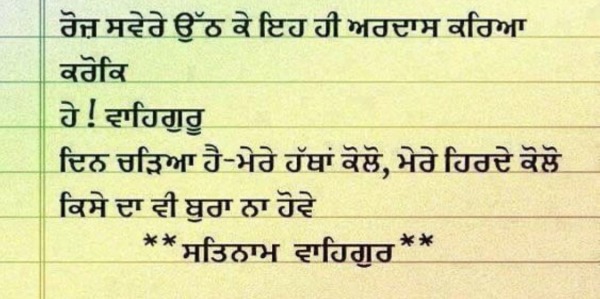 ਰੋਜ਼ ਸਵੇਰੇ ਉੱਠ ਕੇ ਇਹ ਹੀ ਅਰਦਾਸ ਕਰਿਆ
ਕਰੋਕਿ
ਹੇ ! ਵਾਹਿਗੁਰੂ
ਦਿਨ ਚੜਿਆ ਹੈ-ਮੇਰੇ ਹੱਥਾਂ ਕੋਲੋ, ਮੇਰੇ ਹਿਰਦੇ ਕੋਲੋ
ਕਿਸੇ ਦਾ ਵੀ ਬੁਰਾ ਨਾ ਹੋਵੇ
**ਸਤਿਨਾਮ ਵਾਹਿਗੁਰ**